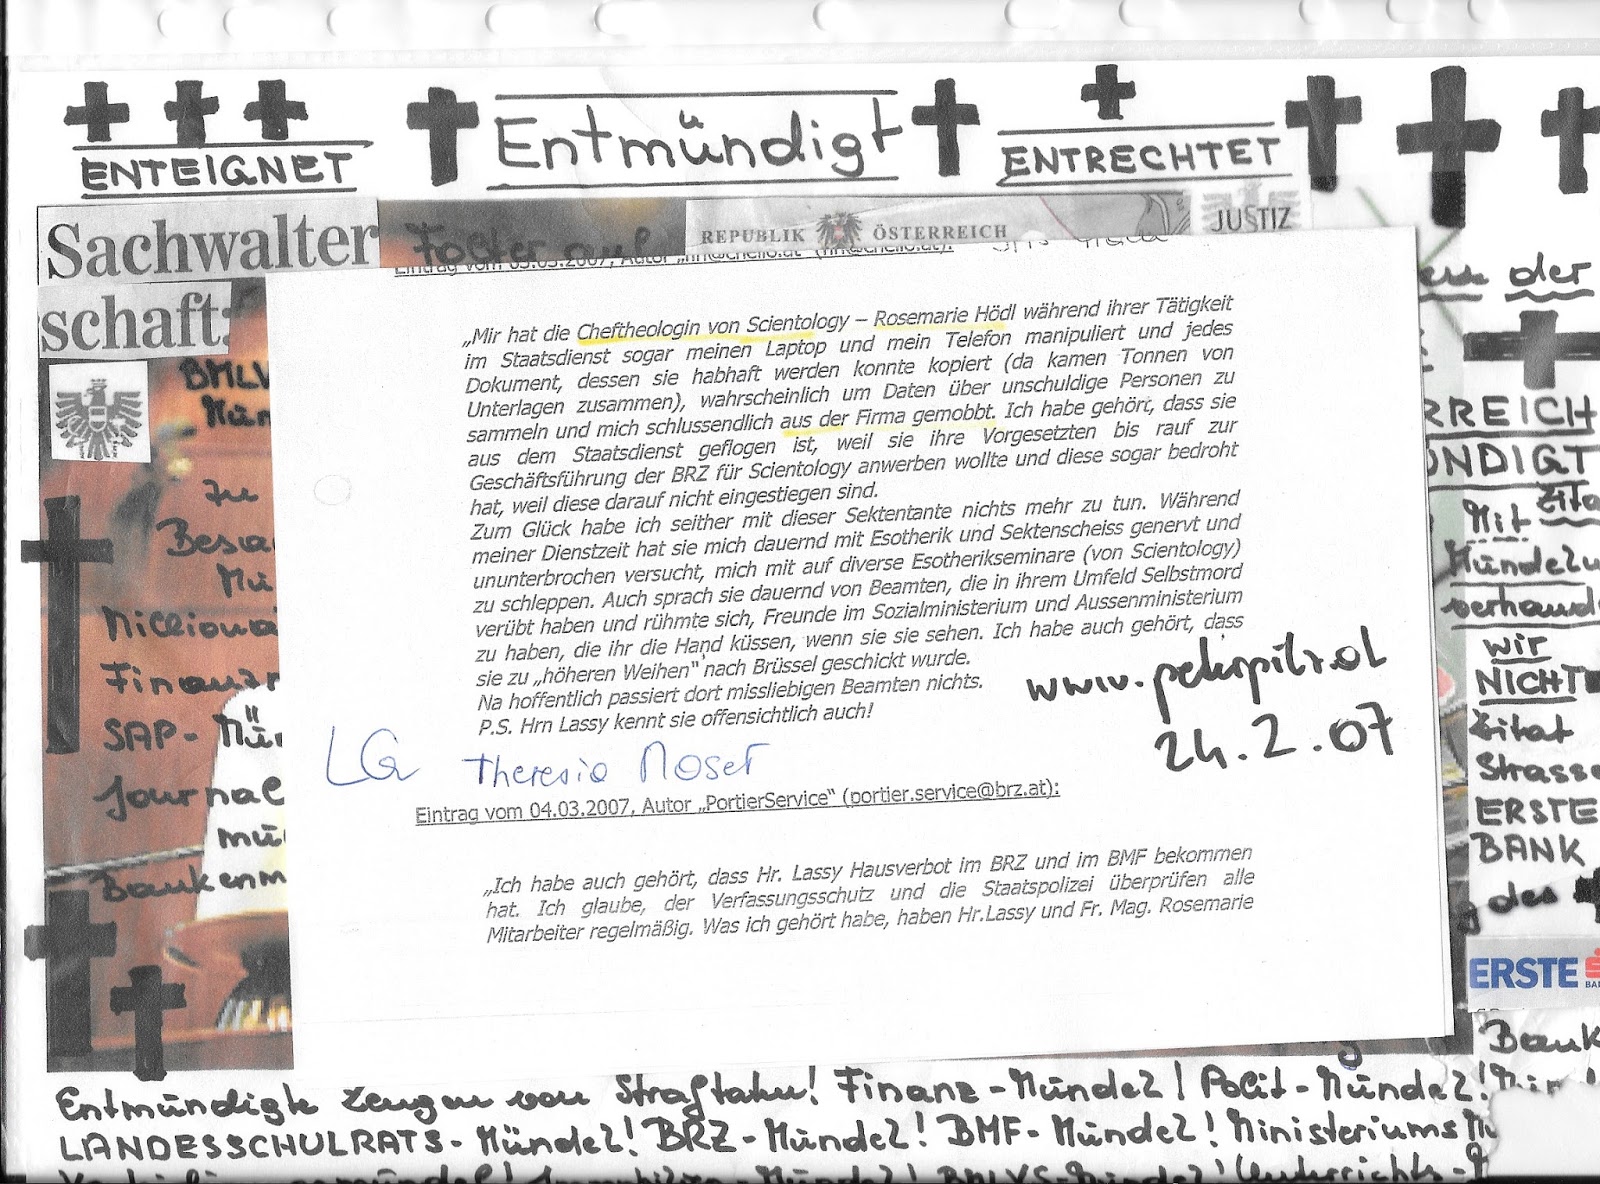 ENTEIGNET
Entmündigt
ENTRECHTET
Sachwalter
schaft:
Folter auf
REPUBLIK ÖSTERREICH
JUSTIZ
Eintrag vom 03.03.2007, Autor
„Mir hat die Cheftheologin von Scientology – Rosemarie Hödl während ihrer Tätigkeit
im Staatsdienst sogar meinen Laptop und mein Telefon manipuliert und jedes
Dokument, dessen sie habhaft werden konnte kopiert (da kamen Tonnen von
Unterlagen zusammen), wahrscheinlich um Daten über unschuldige Personen zu
sammeln und mich schlussendlich aus der Firma gemobbt. Ich habe gehört, dass sie
aus dem Staatsdienst geflogen ist, weil sie ihre Vorgesetzten bis rauf zur
Geschäftsführung der BRZ für Scientology anwerben wollte und diese sogar bedroht
hat, weil diese darauf nicht eingestiegen sind.
Zum Glück habe ich seither mit dieser Sektentante nichts mehr zu tun. Während
meiner Dienstzeit hat sie mich dauernd mit Esotherik und Sektenscheiss genervt und
ununterbrochen versucht, mich mit auf diverse Esotherikseminare (von Scientology)
zu schleppen. Auch sprach sie dauernd von Beamten, die in ihrem Umfeld Selbstmord
verübt haben und rühmte sich, Freunde im Sozialministerium und Aussenministerium
zu haben, die ihr die Hand küssen, wenn sie sie sehen. Ich habe auch gehört, dass
sie zu „höheren Weihen“ nach Brüssel geschickt wurde.
Na hoffentlich passiert dort missliebigen Beamten nichts.
P.S. Hrn Lassy kennt sie offensichtlich auch!
www.peterpilz.at
24.2.07
LG Theresia Moser
Eintrag vom 04.03.2007, Autor „PortierService“ (portier.service@brz.at):
„Ich habe auch gehört, dass Hr. Lassy Hausverbot im BRZ und im BMF bekommen
hat. Ich glaube, der Verfassungsschutz und die Staatspolizei überprüfen alle
Mitarbeiter regelmäßig. Was ich gehört habe, haben Hr.Lassy und Fr. Mag. Rosemarie
BMLV
Mün
zu
Besa
Mü
Milliona
Finanz
SAP-Mün
Journal
mü
Bankenm
der
RREICH
ÜNDIGT
Zita
Mit
Mündelu
verhand
wir
NICHT
Zitat
Strasse
ERSTE
BANK
des
ERSTE
BA
Bank
Entmündigte Zeugen von Straftaten! Finanz-Mündel! Polit-Mündel!
LANDESSCHULRATS-Mündel! BRZ-Mündel! BMF-Mündel! Ministeriums Mü
Immobilien-Mündel! BMLVS-Mündel! Unterrichts-